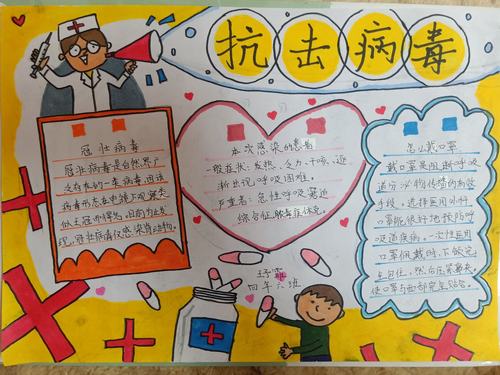 抗击病毒
冠壮病毒
冠壮病毒是自然界广
泛存在的一类病毒,因该
病毒形态在电镜下观察类
似王冠而得名,目前为止发
现,冠壮病毒仅感染脊椎动物。
本次感染的患者
一般症状:发热、乏力、干咳、逐
渐出现呼吸困难。
严重者:急性呼吸窘迫
综合征、脓毒症休克。
怎么戴口罩
戴口罩是阻断呼吸
道分泌物传播的有效
手段,选择医用外科
口罩能很好地预防呼
吸道疾病。一次性医用
口罩佩戴时,下颌完
全包住,然后压紧鼻夹,
使口罩与面部完全贴合。
四年六班